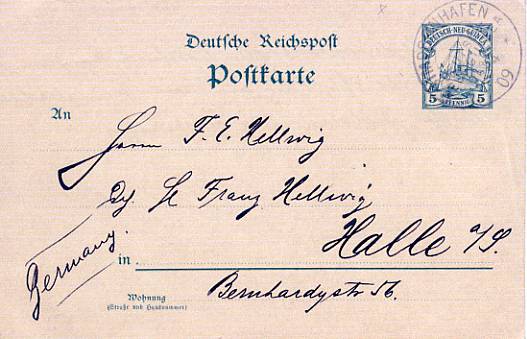 Deutsche Reichspost
Postkarte
DEUTSCH-NEU-GUINEA
5 PFENNIG 5
HAFEN
09
An
Herrn F. E. Hellwig
Franz Hellwig
Halle a/S.
Germany.
in
Bernhardystr 56.
Wohnung
(Straße und Hausnummer)